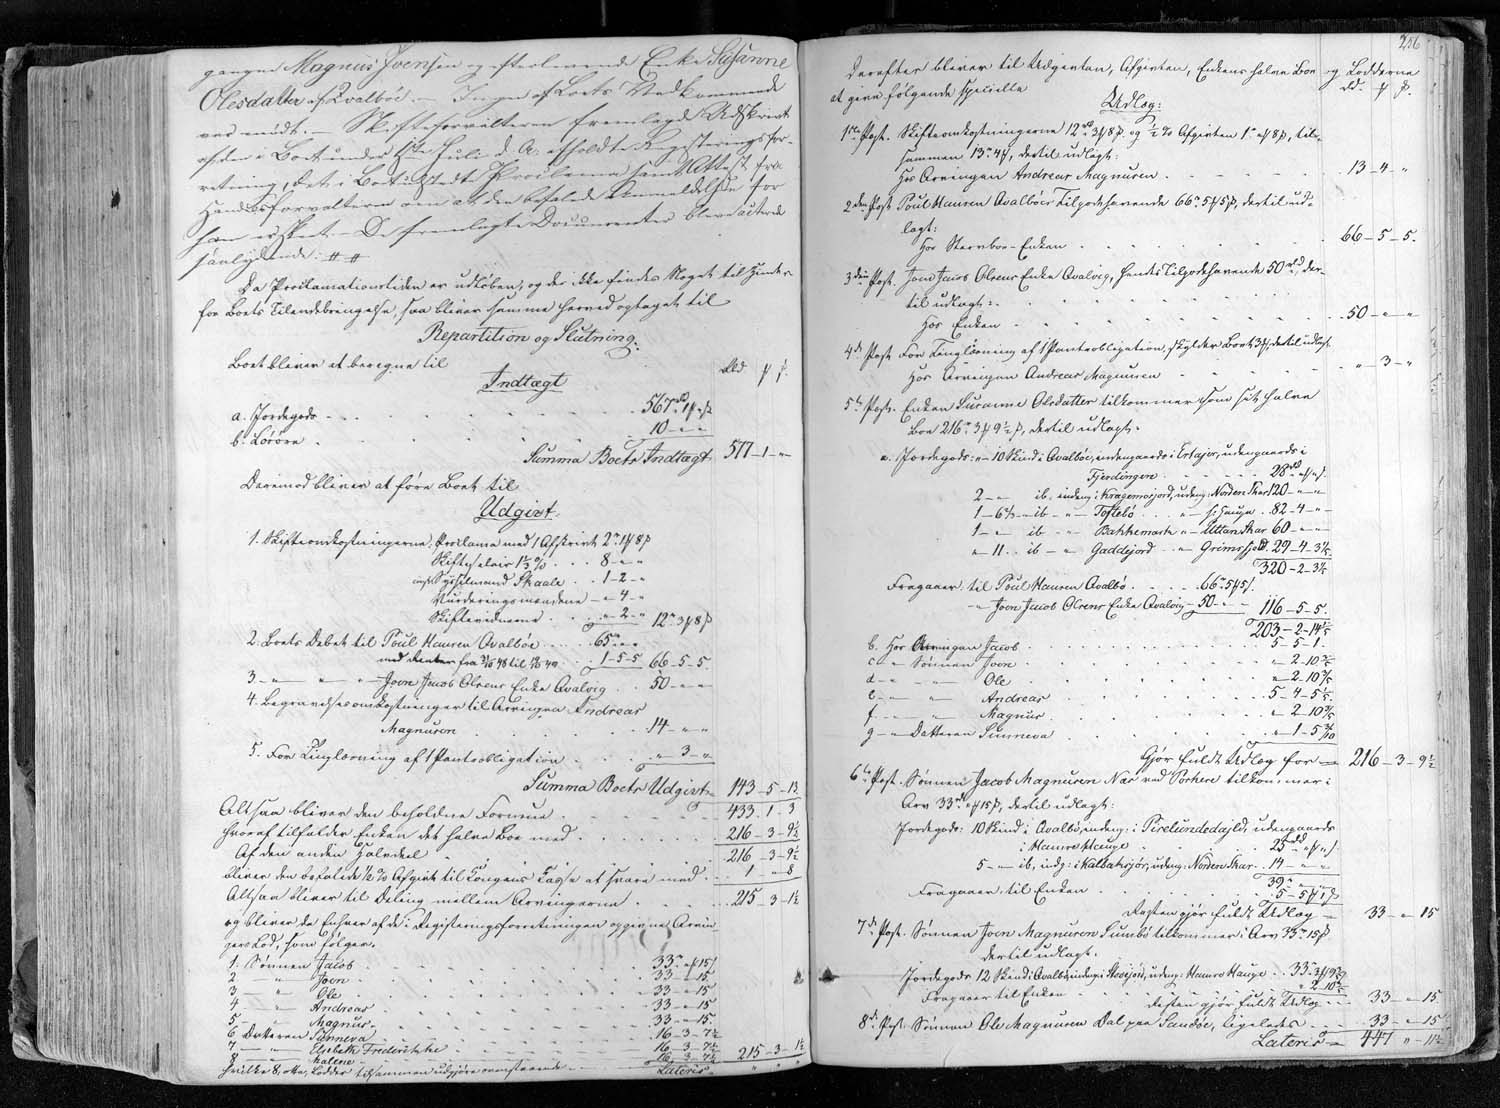 gangne Magnus Joensen og efterlevende Enke Susanne
Olesdatter af Qvalböe. — Ingen af Boets Vedkommende
var mödt. — Skifteforvalteren fremlagde Udskrivt
af den i Boet under Juli d. A. afholdte Registeringsfor-
retning, det i Boet udstædte Proclama samt Attest fra
Handelsforvalteren om at den befalede Anmeldelse for
ham er skeet. — De fremlagte Documenter bleve acterede
saalydende: # #
Da Proclamationstiden er udlöben, og der ikke findes Noget til Hinder
for Boets Tilendebringelse, saa bliver samme herved optaget til
Repartition og Slutning:
Boet bliver at beregne til
Indtægt
a. Jordegods 567 1
b. Lösöre 10 " "
Summa Boets Indtægt 577 – 1 – "
Derimod bliver at före Boet til
Udgivt
1. Skifteomkostningerne: Proclama med 1 Afskrivt 2 1 8
Skiftesalair 1⅓ % 8 – " – "
Sysselmand Skaale 1 – 2 – "
Vurderingsmændene " – 4 – "
Skiftevidnerne " – 2 – " 12 3 8
2. Boets Debet til Poul Hansen Qvalböe 65
med Renter fra til 1 – 5 – 5 66 – 5 – 5
3 – " – " – Joen Jacob Olsens Enke Qvalvig 50 – " – "
4. Begravelsesomkostninger til Arvingen Andreas
Magnusen 14 – " – "
5. For Tinglæsning af 1 Panteobligation " 3 – "
Summa Boets Udgivt 143 – 5 – 13
Altsaa bliver den beholdne Formue 433 . 1 . 3
hvoraf tilfalder Enken det halve Boe med 216 – 3 – 9½
Af den anden Halvdeel 216 – 3 – 9½
bliver den befalede ½ % Afgivt til Kongens Casse at svare med 1 " 8
Altsaa bliver til Deling mellem Arvingerne 215 – 3 – 1½
og bliver da Enhver af de i Registeringsforretningen opgivne Arvin
gers Lod, som fölger.
1. Sönnen Jacob 33 " 15
2 – " Joen 33 – 15
3 " Ole 33 – " 15
4 " Andreas 33 – " 15
5 " Magnus 33 – " 15
6 Datteren Sunneva 16 – 3 – 7½
7 – " Elsebeth Frederikke 16 – 3 – 7½
8 " Malene 16 – 3 – 7½ 215 – 3 – 1½
hvilke 8, otte, Lodder tilsammen udgjöre ovenstaaende Lateris
216
Derefter bliver til Udgivten, Afgivten, Enkens halve Boe og Lodderne
at give fölgende specielle
Udlæg:
1ste Post. Skifteomkostningerne 12 3 8 og ½ % Afgivten 1 " 8, til-
sammen 13 4, dertil udlagt:
Hos Arvingen Andreas Magnusen 13 – 4 – "
2den Post Poul Hansen Qvalböes Tilgodehavende 66 5 5, dertil ud-
lagt:
Hos Stervboe-Enken 66 – 5 – 5.
3die Post. Joen Jacob Olsens Enke Qvalvig, hendes Tilgodehavende 50, der-
til udlagt:
Hos Enken 50 – " – "
4de Post For Tinglæsning af 1 Panteobligation, skylder Boet 3, dertil udlagt
Hos Arvingen Andreas Magnusen " 3 – "
5te Post. Enken Susanne Olesdatter tilkommer som sit halve
Boe 216 3 9½, dertil udlagt.
a. Jordegods: 10 Skind i Qvalböe, indengaards i , udengaards i
Fjerdingen 28
2 – " ib. indeng: i Kragemosjord, udeng: Norden Skar 120 – " – "
1 – 6 – ib – " – Toftebö " i: Hauge 82 – 4 – "
1 – " ib – " Bakkemark " Uttan Skar 60 – " – "
" 11 . . ib – " Gaddejord " 29 – 4 – 3
320 – 2 – 3
Fragaaer til Poul Hansen Qvalbö 66 5 5
" – Joen Jacob Olsens Enke Qvalvig 50 – " – " 116 – 5 – 5.
203 – 2 – 14
b. Hos Arvingen Jacob 5 – 5 – 1.
c " Sönnen Joen " 2 – 10
d " " Ole " 2 – 10
e " " Andreas 5 – 4 – 5
f " " Magnus " 2 10
g " Datteren Sunneva " 1 – 5
Gjör fuldt Udlæg for 216 – 3 – 9½
6te Post. Sönnen Jacob Magnusen Næs ved Porkere tilkommer i
Arv 33 " 15, dertil udlagt:
Jordegods: 10 Skind i Qvalbö, indeng: i , udengaards
i Hamre Hauge 25
5 – " ib, indg: i , udeng: Norden Skar 14
39
Fragaaer til Enken 5 – 5 1
Resten gjör fuldt Udlæg 33 – " 15
7de Post. Sönnen Joen Magnusen Sumbö tilkommer i Arv 33 15
dertil udlagt.
Jordegods 12 Skind i Qvalbö, indeng: i , udeng: Hamre Hauge 33 3
Fragaaer til Enken " 2 10
Resten gjör fuldt Udlæg 33 " 15
8de Post. Sönnen Ole Magnusen Dal paa Sandöe, ligeledes 33 – " 15
Lateris 447 " 11½